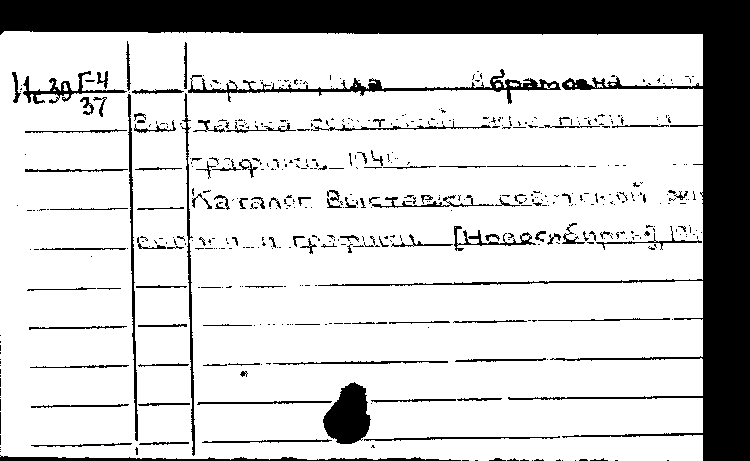 Ис39 Г-4
37
Портная, Ида Абрамовна сост.
Выставка советской живописи и
графики. 1946.
Каталог Выставки советской жи
вописи и графики. [Новосибирск], 194